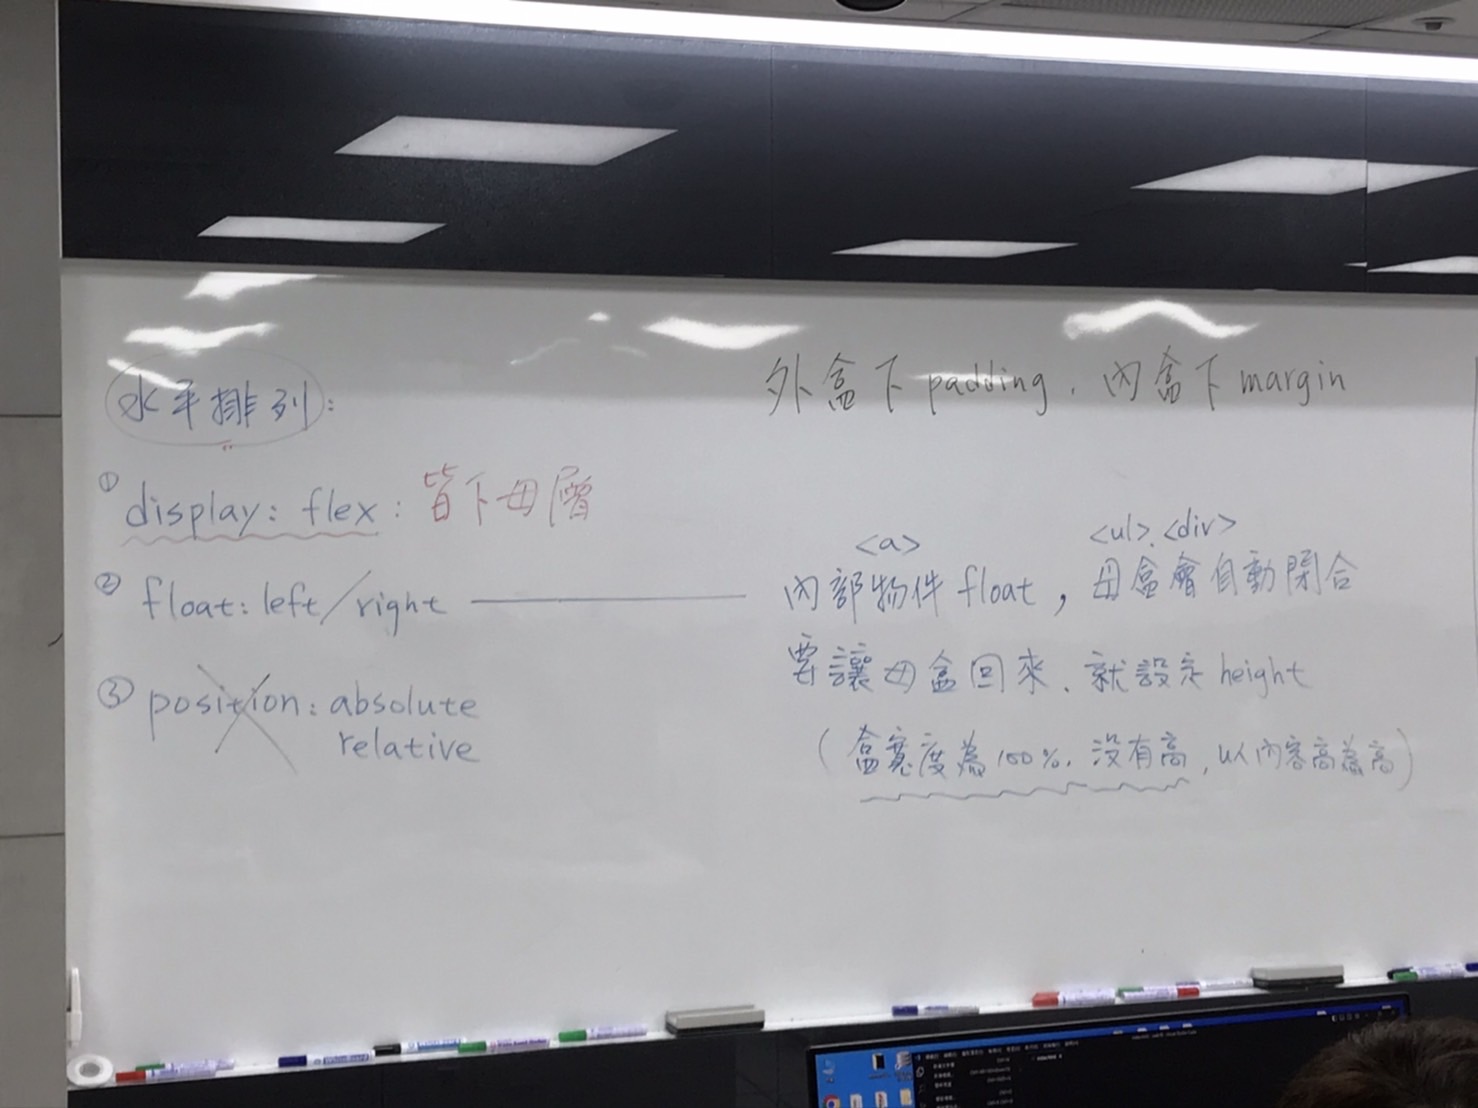 水平排列:
① display: flex: 皆下母層
② float: left/right
③ position: absolute
relative
外盒下 padding、內盒下 margin
<a> <ul>、<div>
內部物件 float，母盒會自動閉合
要讓母盒回來、就設定 height
(盒寬度為100%、沒有高，以內容高為高)